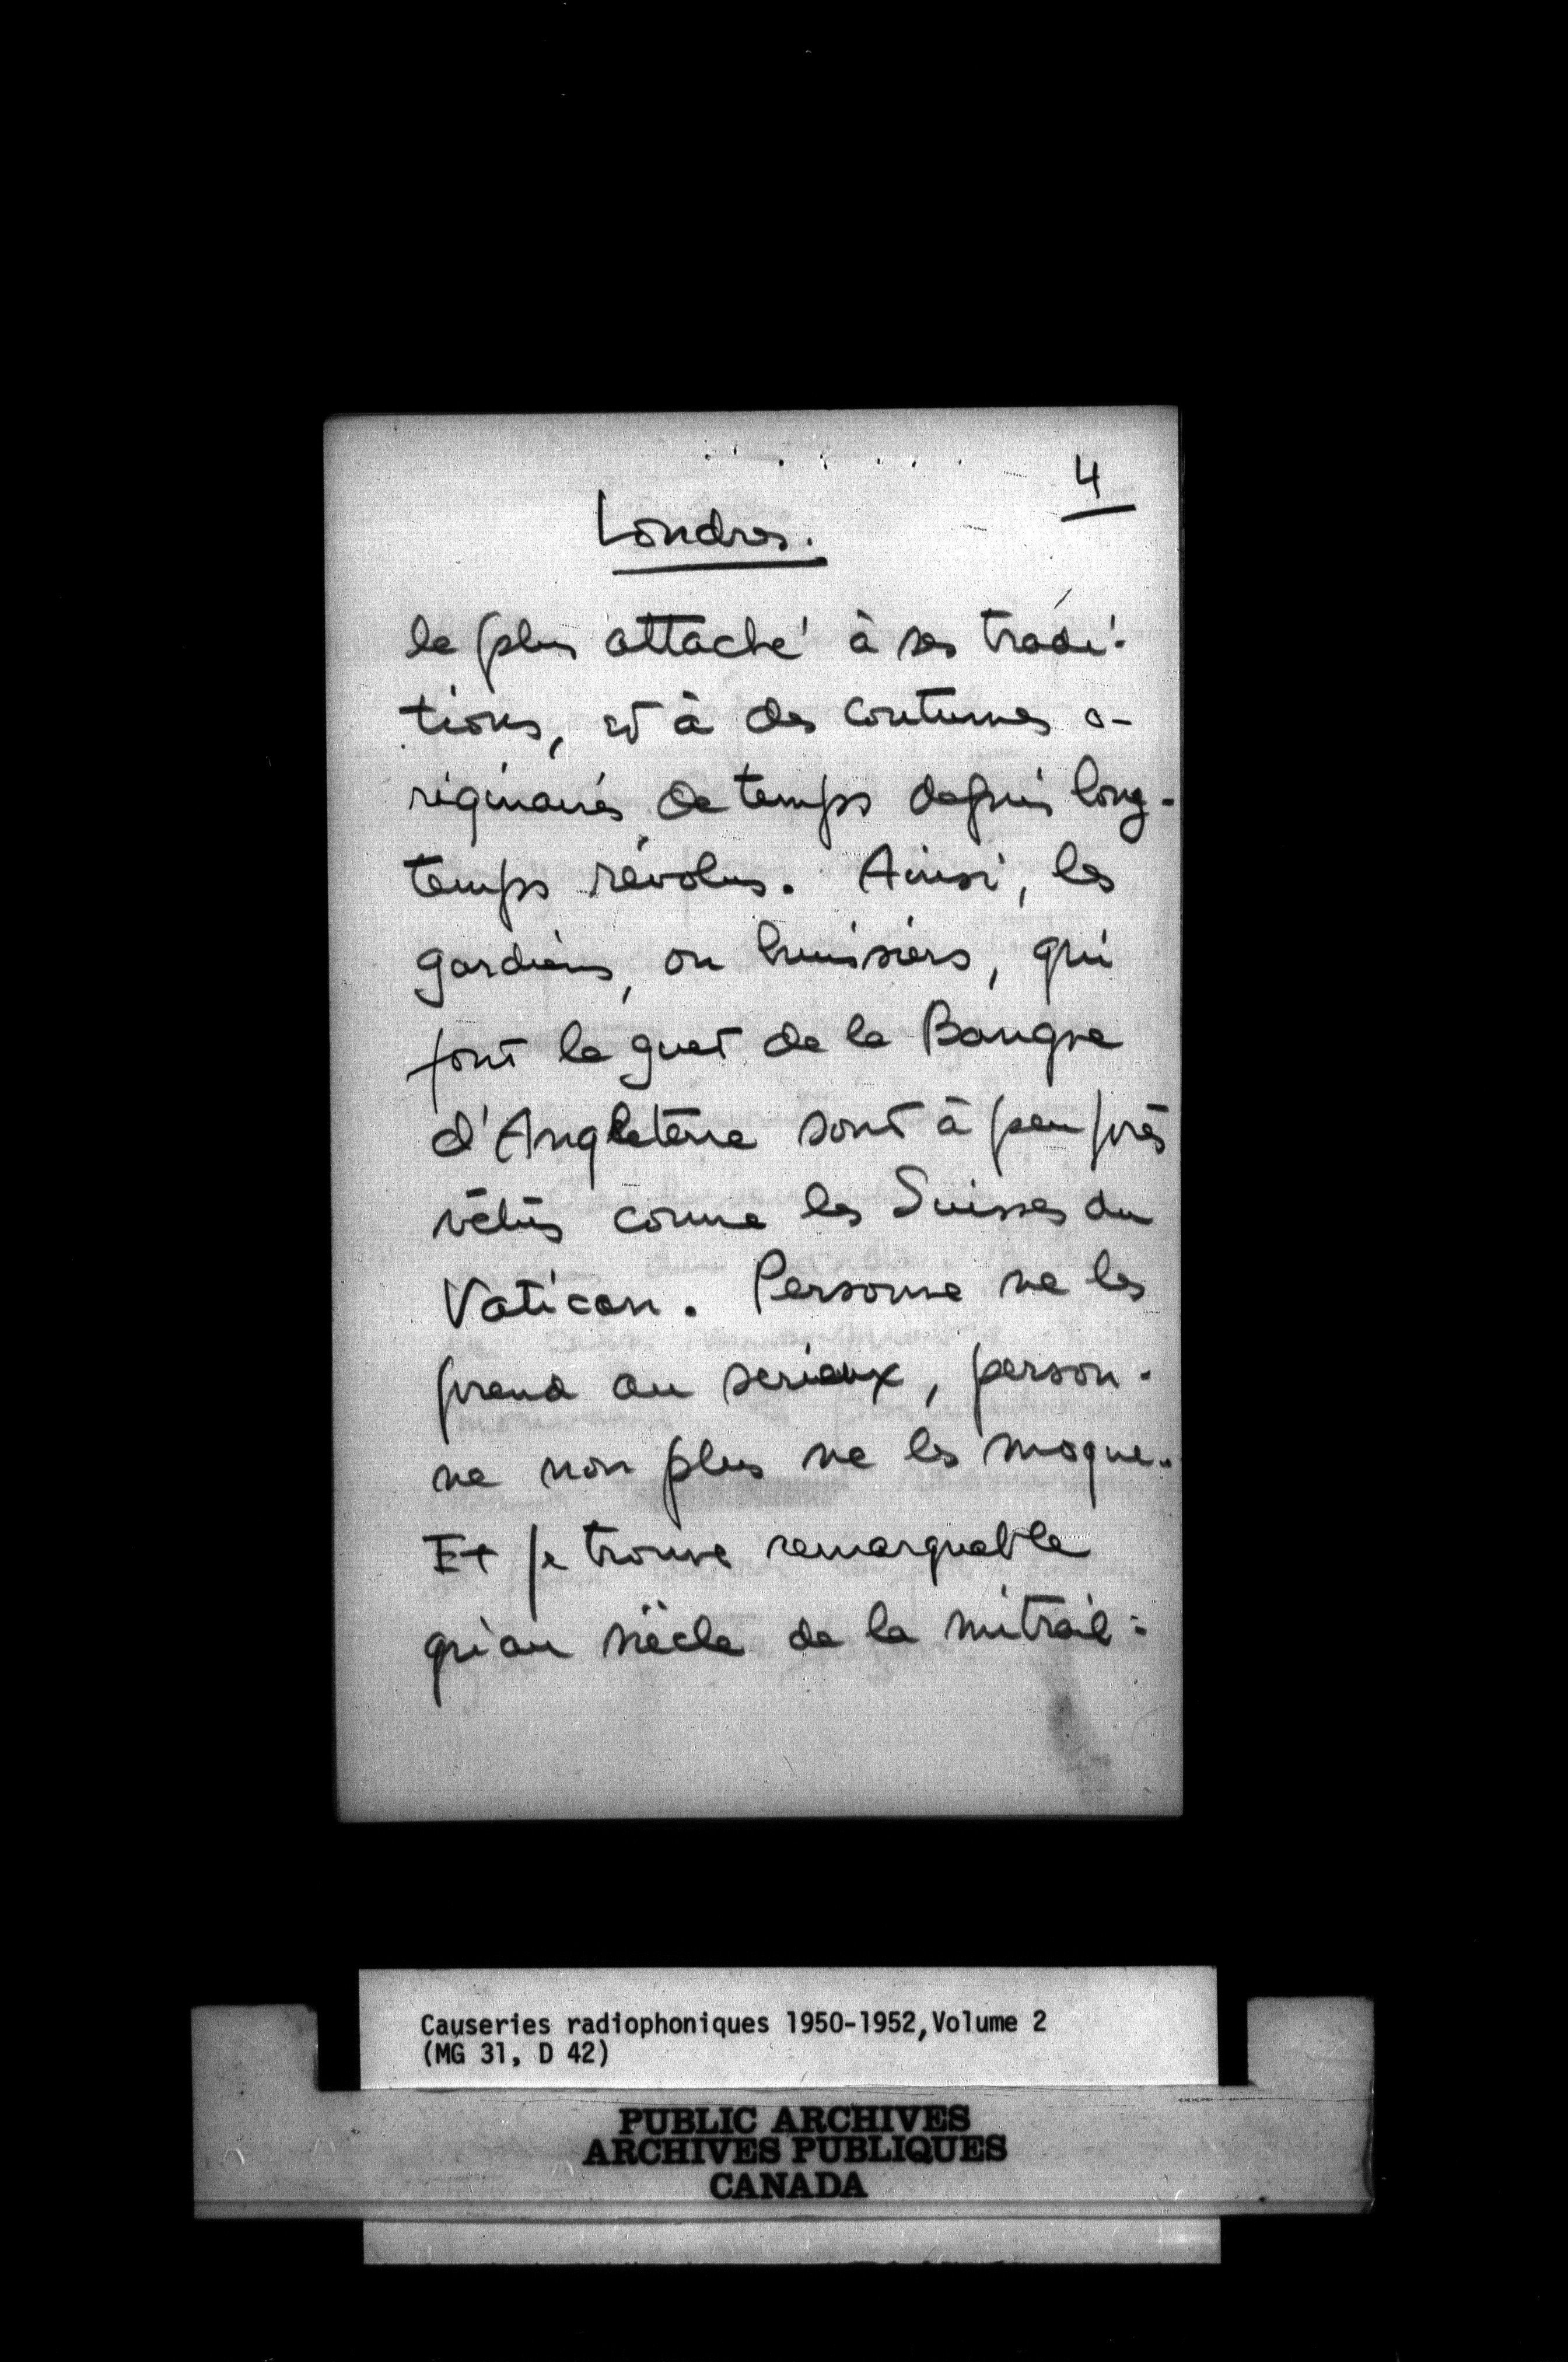 4
Londres.
le plus attaché à ses tradi-
tions, et à des coutumes o-
riginaires de temps depuis long-
temps révolus. Ainsi, les
gardiens, ou huissiers, qui
font le guet de la Banque
d'Angleterre sont à peu près
vêtus comme les Suisses du
Vatican. Personne ne les
prend au serieux, person-
ne non plus ne les moque.
Et je trouve remarquable
qu'au siècle de la mitrail-
Causeries radiophoniques 1950-1952, Volume 2
(MG 31, D 42)
PUBLIC ARCHIVES
ARCHIVES PUBLIQUES
CANADA